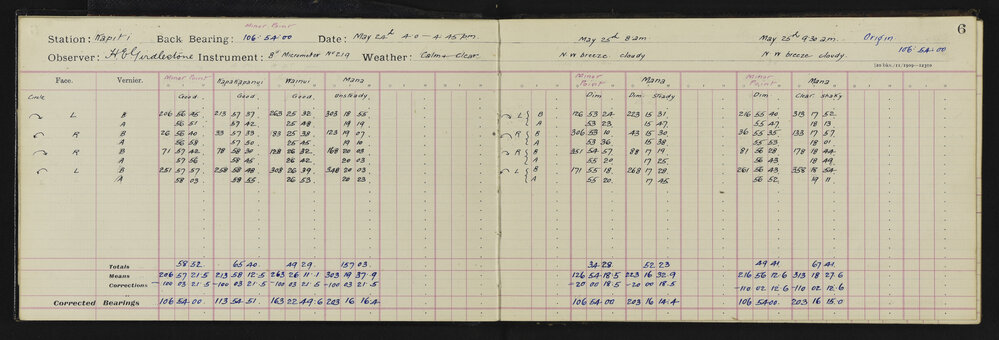 Minor Point
Station: Kapiti Back Bearing: 106·54·00 Date: May 24th 4·0–4·45 pm. May 25th 8 am. May 25th 9.30 am. Origin 6
Observer: H.E. Girdlestone Instrument: 8" Micrometer No 219 Weather: Calm & Clear N.W breeze cloudy N.W breeze cloudy. 106·54·00
[20 bks./11/1909—12309
Face. Vernier. Minor Point Kapakapanui Wainui Mana Minor Point Mana Minor Point Mana
Circle Good Good Good Unsteady Dim Dim Steady Dim Clear Shaky
L B 206 56 45 213 57 37 263 25 32 303 18 55 L B 126 53 24 223 15 31 216 55 40 313 17 52
A 56 51 57 42 25 48 19 19 A 53 23 15 47 55 47 18 13
R B 26 56 40 33 57 33 83 25 38 123 19 07 R B 306 53 10 43 15 30 36 55 35 133 17 57
A 56 58 57 50 25 45 19 10 A 53 36 15 38 55 53 18 01
R B 71 57 42 78 58 30 128 26 32 168 20 03 R B 351 54 57 88 17 19 81 56 28 178 18 44
A 57 56 58 45 26 42 20 03 A 55 20 17 25 56 43 18 49
L B 251 57 57 258 58 48 308 26 39 348 20 03 L B 171 55 18 268 17 28 261 56 43 358 18 54
A 58 03 58 55 26 53 20 23 A 55 20 17 45 56 52 19 11
Totals 58 52 65 40 49 29 157 03 34 28 52 23 49 41 67 41
Means 206 57 21·5 213 58 12·5 263 26 11·1 303 19 37·9 126 54 18·5 223 16 32·9 216 56 12·6 313 18 27·6
Corrections –100 03 21·5 –100 03 21·5 –100 03 21·5 –100 03 21·5 –20 00 18·5 –20 00 18·5 –110 02 12·6 –110 02 12·6
Corrected Bearings 106 54 00 113 54 51 163 22 49·6 203 16 16·4 106 54 00 203 16 14·4 106 54 00 203 16 15·0